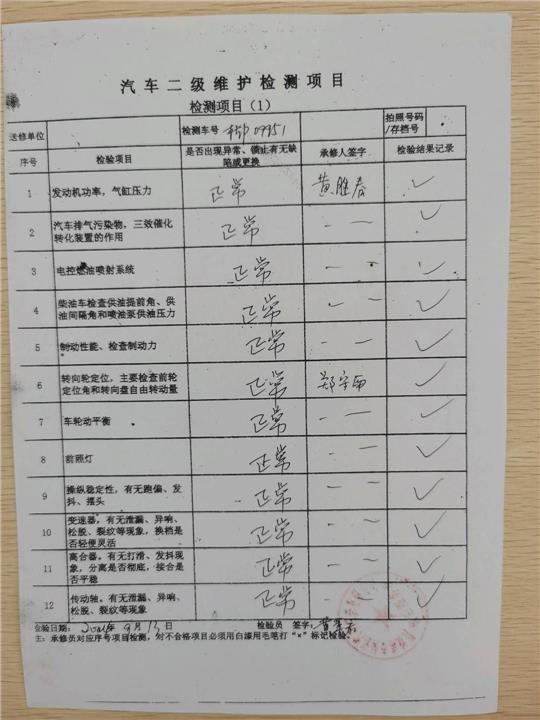 汽车二级维护检测项目
检测项目(1)
送修单位 检测车号 09951 拍照号码/存档号
序号 检验项目 是否出现异常、锁止有无缺陷或更换 承修人签字 检验结果记录
1 发动机功率,气缸压力 正常 黄胜春 ✓
2 汽车排气污染物,三效催化转化装置的作用 正常 — — ✓
3 电控燃油喷射系统 正常 — — ✓
4 柴油车检查供油提前角、供油间隔角和喷油泵供油压力 正常 — — ✓
5 制动性能、检查制动力 正常 — — ✓
6 转向轮定位,主要检查前轮定位角和转向盘自由转动量 正常 ✓
7 车轮动平衡 正常 — — ✓
8 前照灯 正常 — — ✓
9 操纵稳定性,有无跑偏、发抖、摆头 正常 — — ✓
10 变速器,有无泄漏、异响、松脱、裂纹等现象,换档是否轻便灵活 正常 — — ✓
11 离合器。有无打滑、发抖现象,分离是否彻底,接合是否平稳 正常 — — ✓
12 传动轴。有无泄漏、异响、松脱、裂纹等现象 正常 — — ✓
检验日期: 年9月13日 检验员 签字:
主:承修员对应序号项目检测,对不合格项目必须用白漆用毛笔打“×”标记检验。